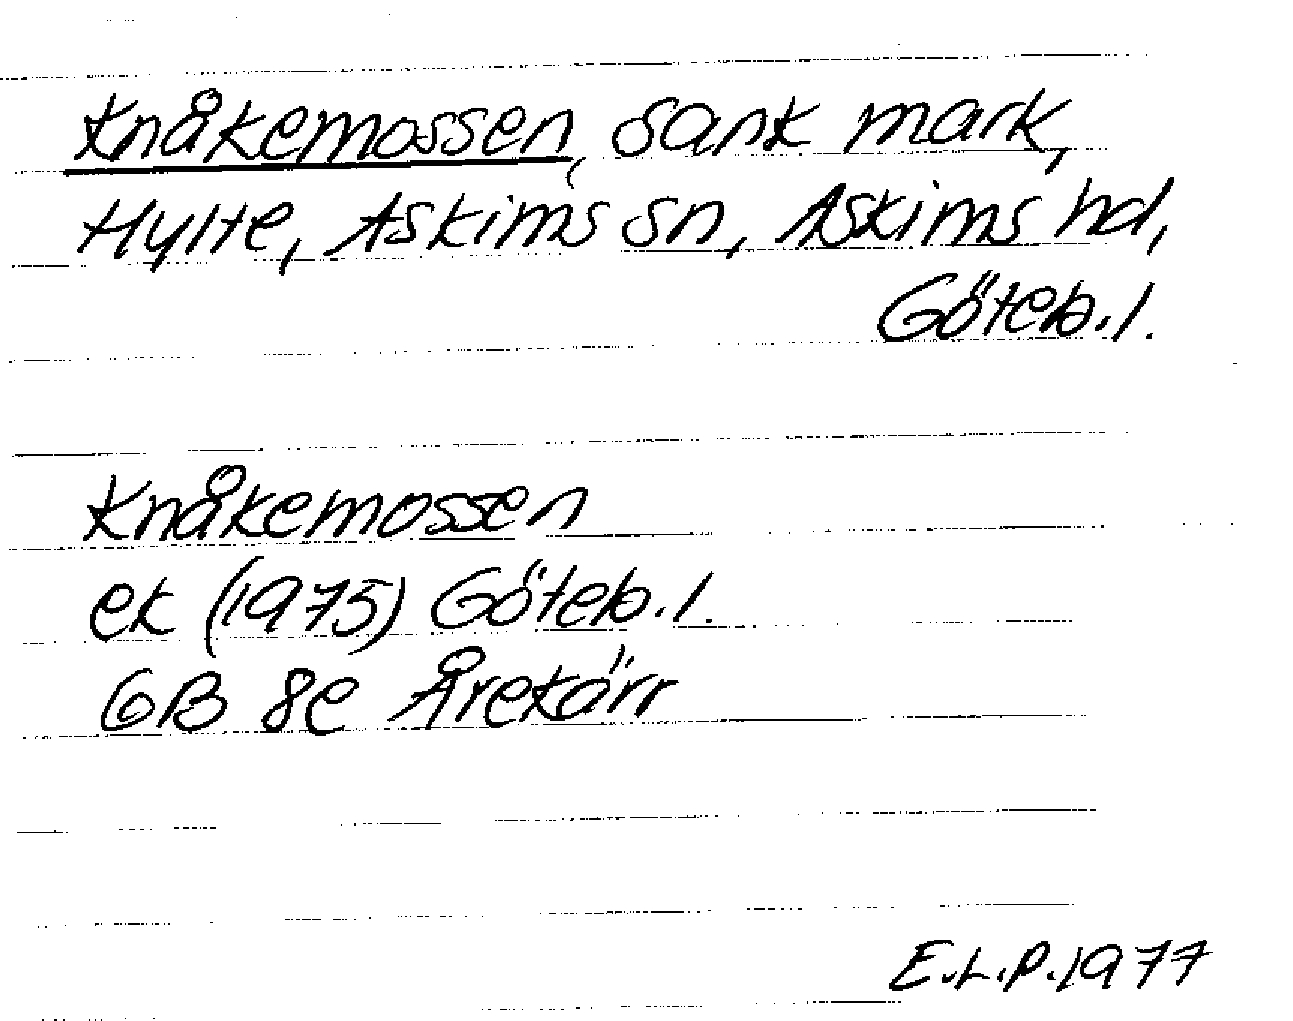 Knåkemossen, sank mark,
Hylte, Askims sn, Askims hd,
Göteb. l.
Knåkemossen
ek (1975) Göteb. l.
6B 8e Årekärr
E.L.P. 1977